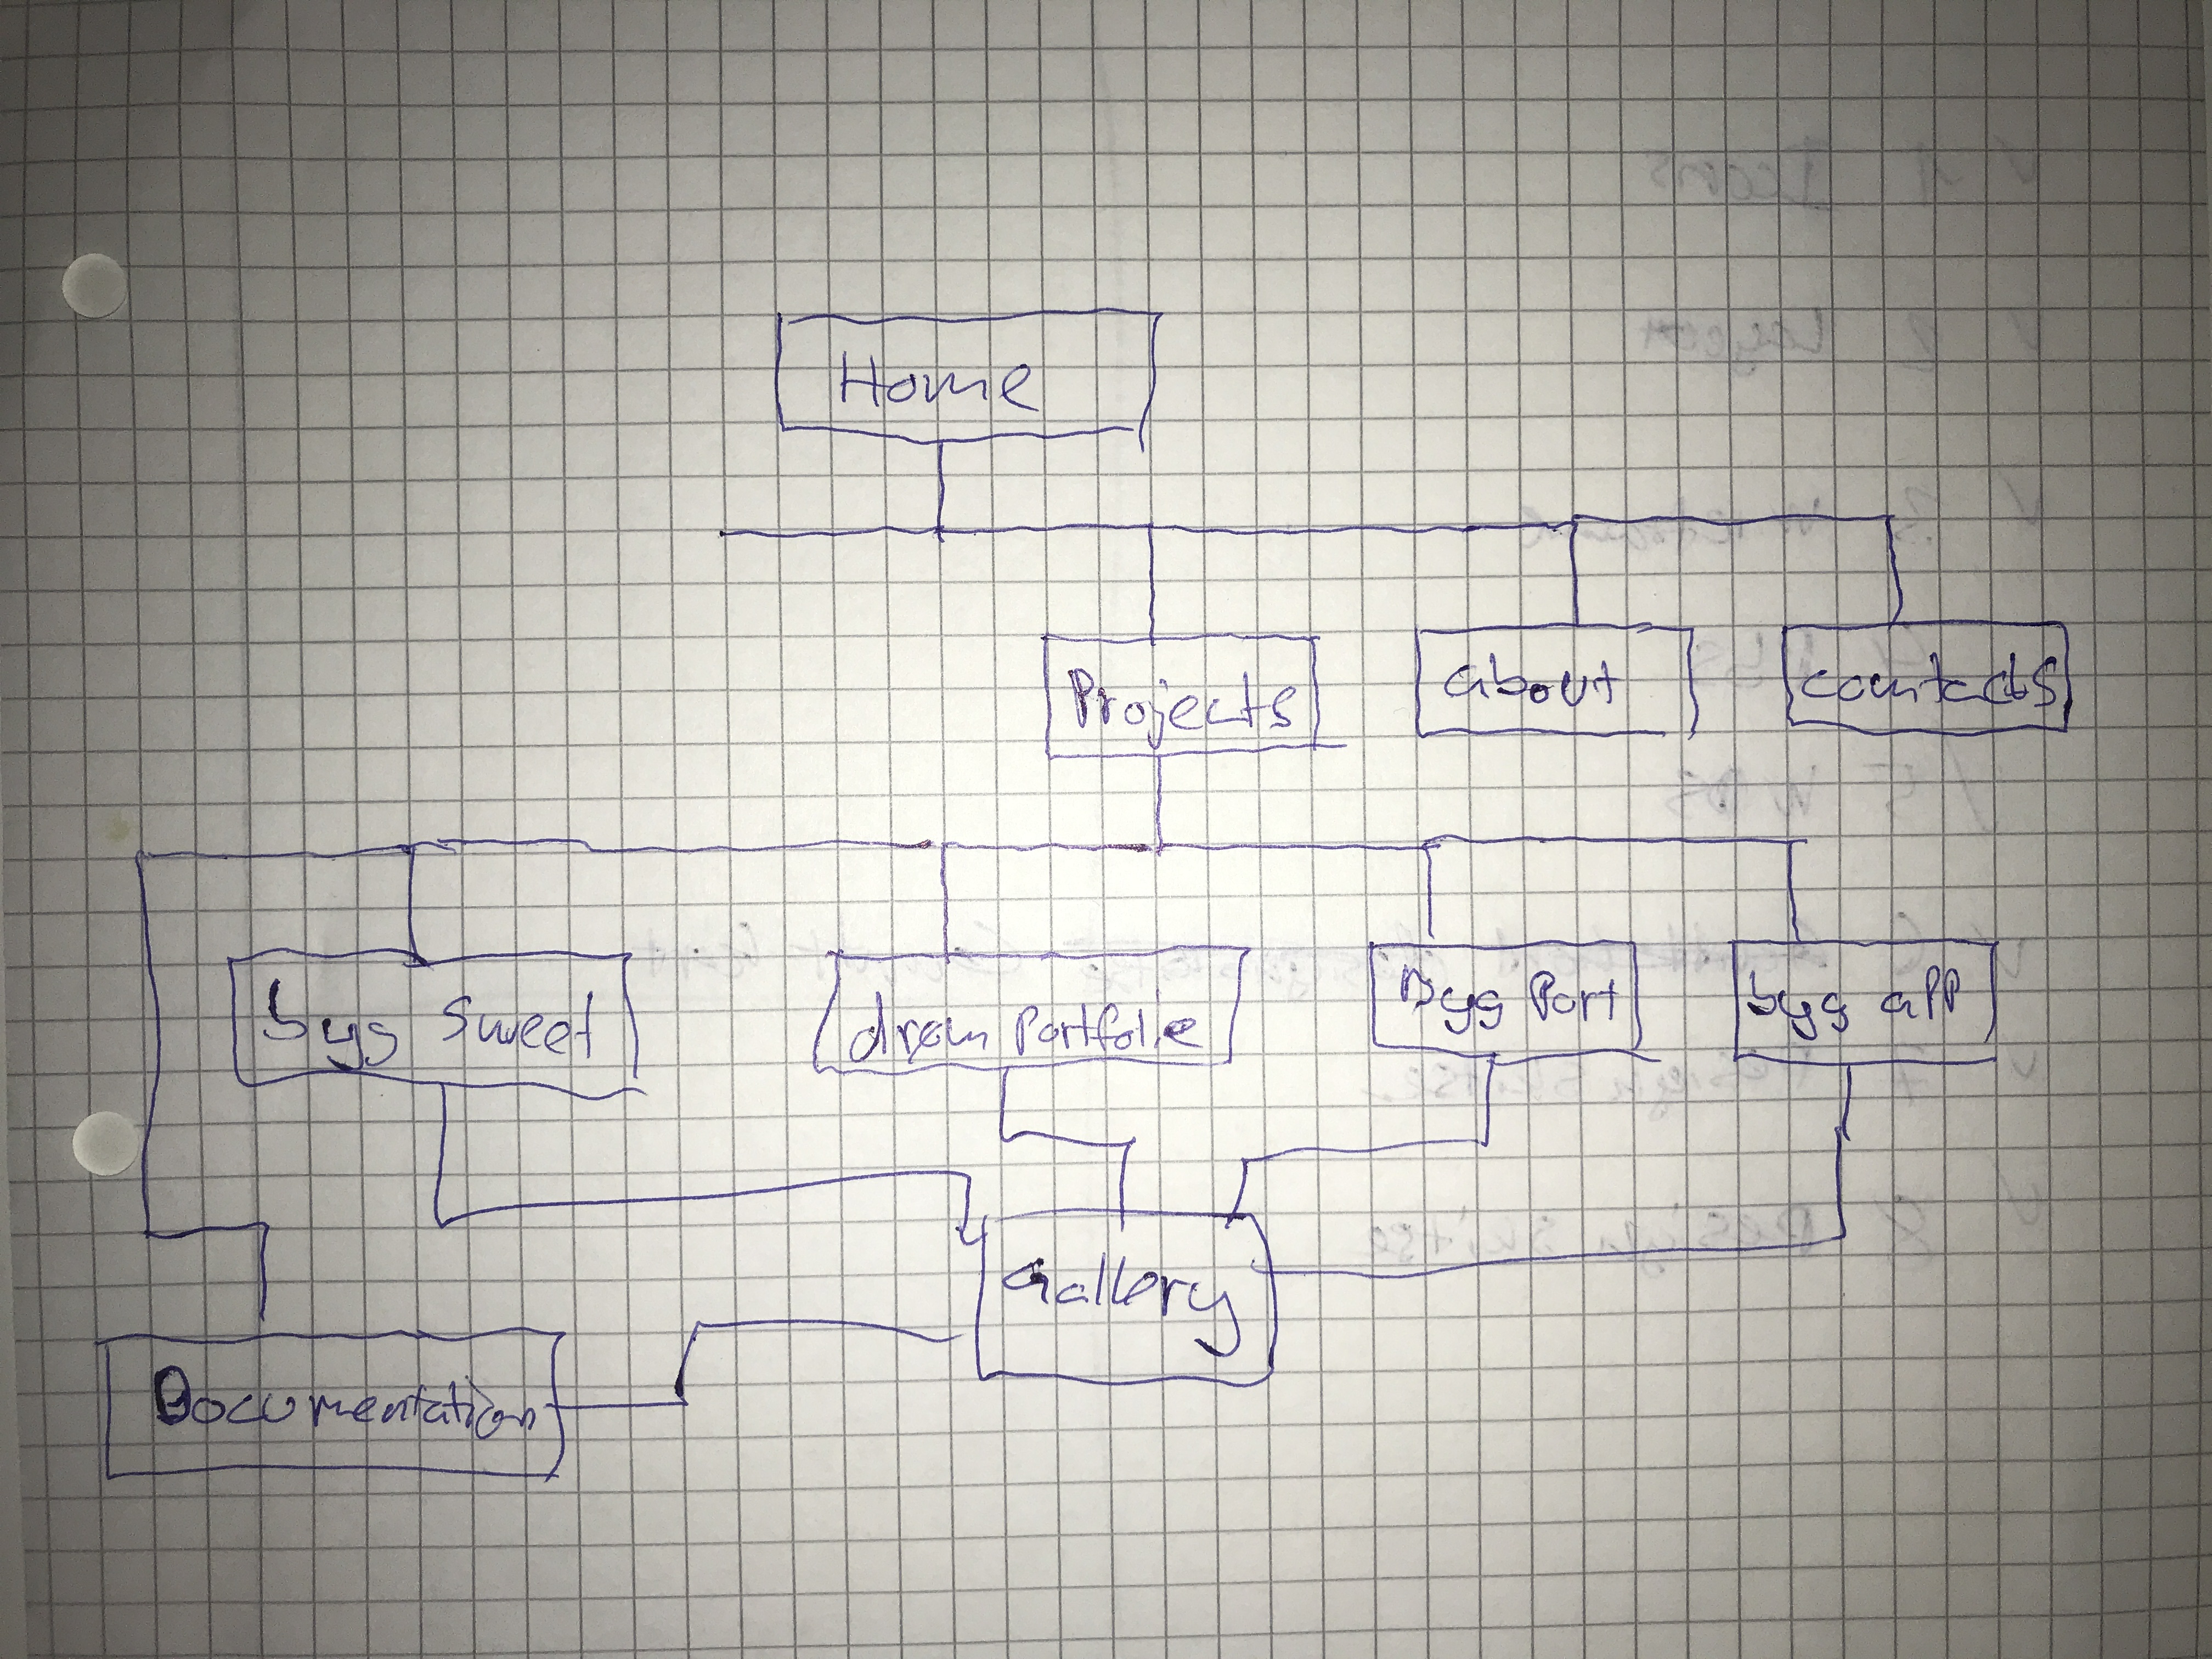 Home
Projects
about
contacts
bygg sweet
dream Portfolie
Bygg Port
bygg app
Gallery
Documentation